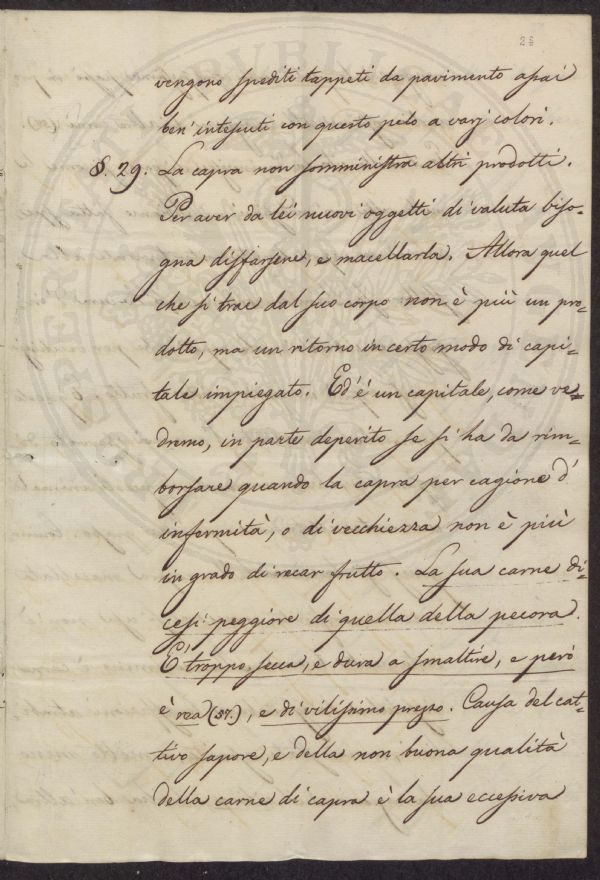 26
vengono spediti tappeti da pavimento assai
ben' intessuti con questo pelo a varj colori.
§. 29. La capra non somministra altri prodotti.
Per aver da lei nuovi oggetti di valuta biso-
gna disfarsene, e macellarla. Allora quel
che si trae dal suo corpo non è più un pro-
dotto, ma un ritorno in certo modo di capi-
tale impiegato. Ed' é un capitale, come ve-
dremo, in parte deperito se si ha da rim-
borsare quando la capra per cagione d'
infermità, o di vecchiezza non è più
in grado di recar frutto. La sua carne di-
cesi peggiore di quella della pecora.
E' troppo secca, e dura a smaltire, e però
è rea (57.), e di vilissimo prezzo. Causa del cat-
tivo sapore, e della non buona qualità
della carne di capra è la sua eccessiva